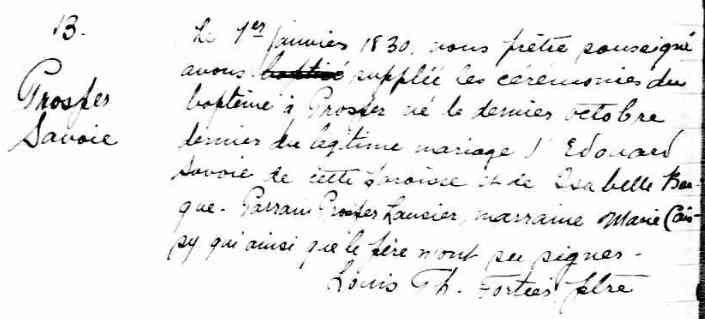 B.
Prosper
Savoie
Le 1er janvier 1830, nous prêtre soussigné
avons baptisé suppléé les cérémonies du
baptême à Prosper né le dernier octobre
dernier du légitime mariage d'Edouard
Savoie de cette paroisse et de Isabelle Bau-
que. Parrain Prosper Lansier, marraine Marie Cais-
py qui ainsi que le père n'ont su signer.
Louis Th. Fortier, ptre